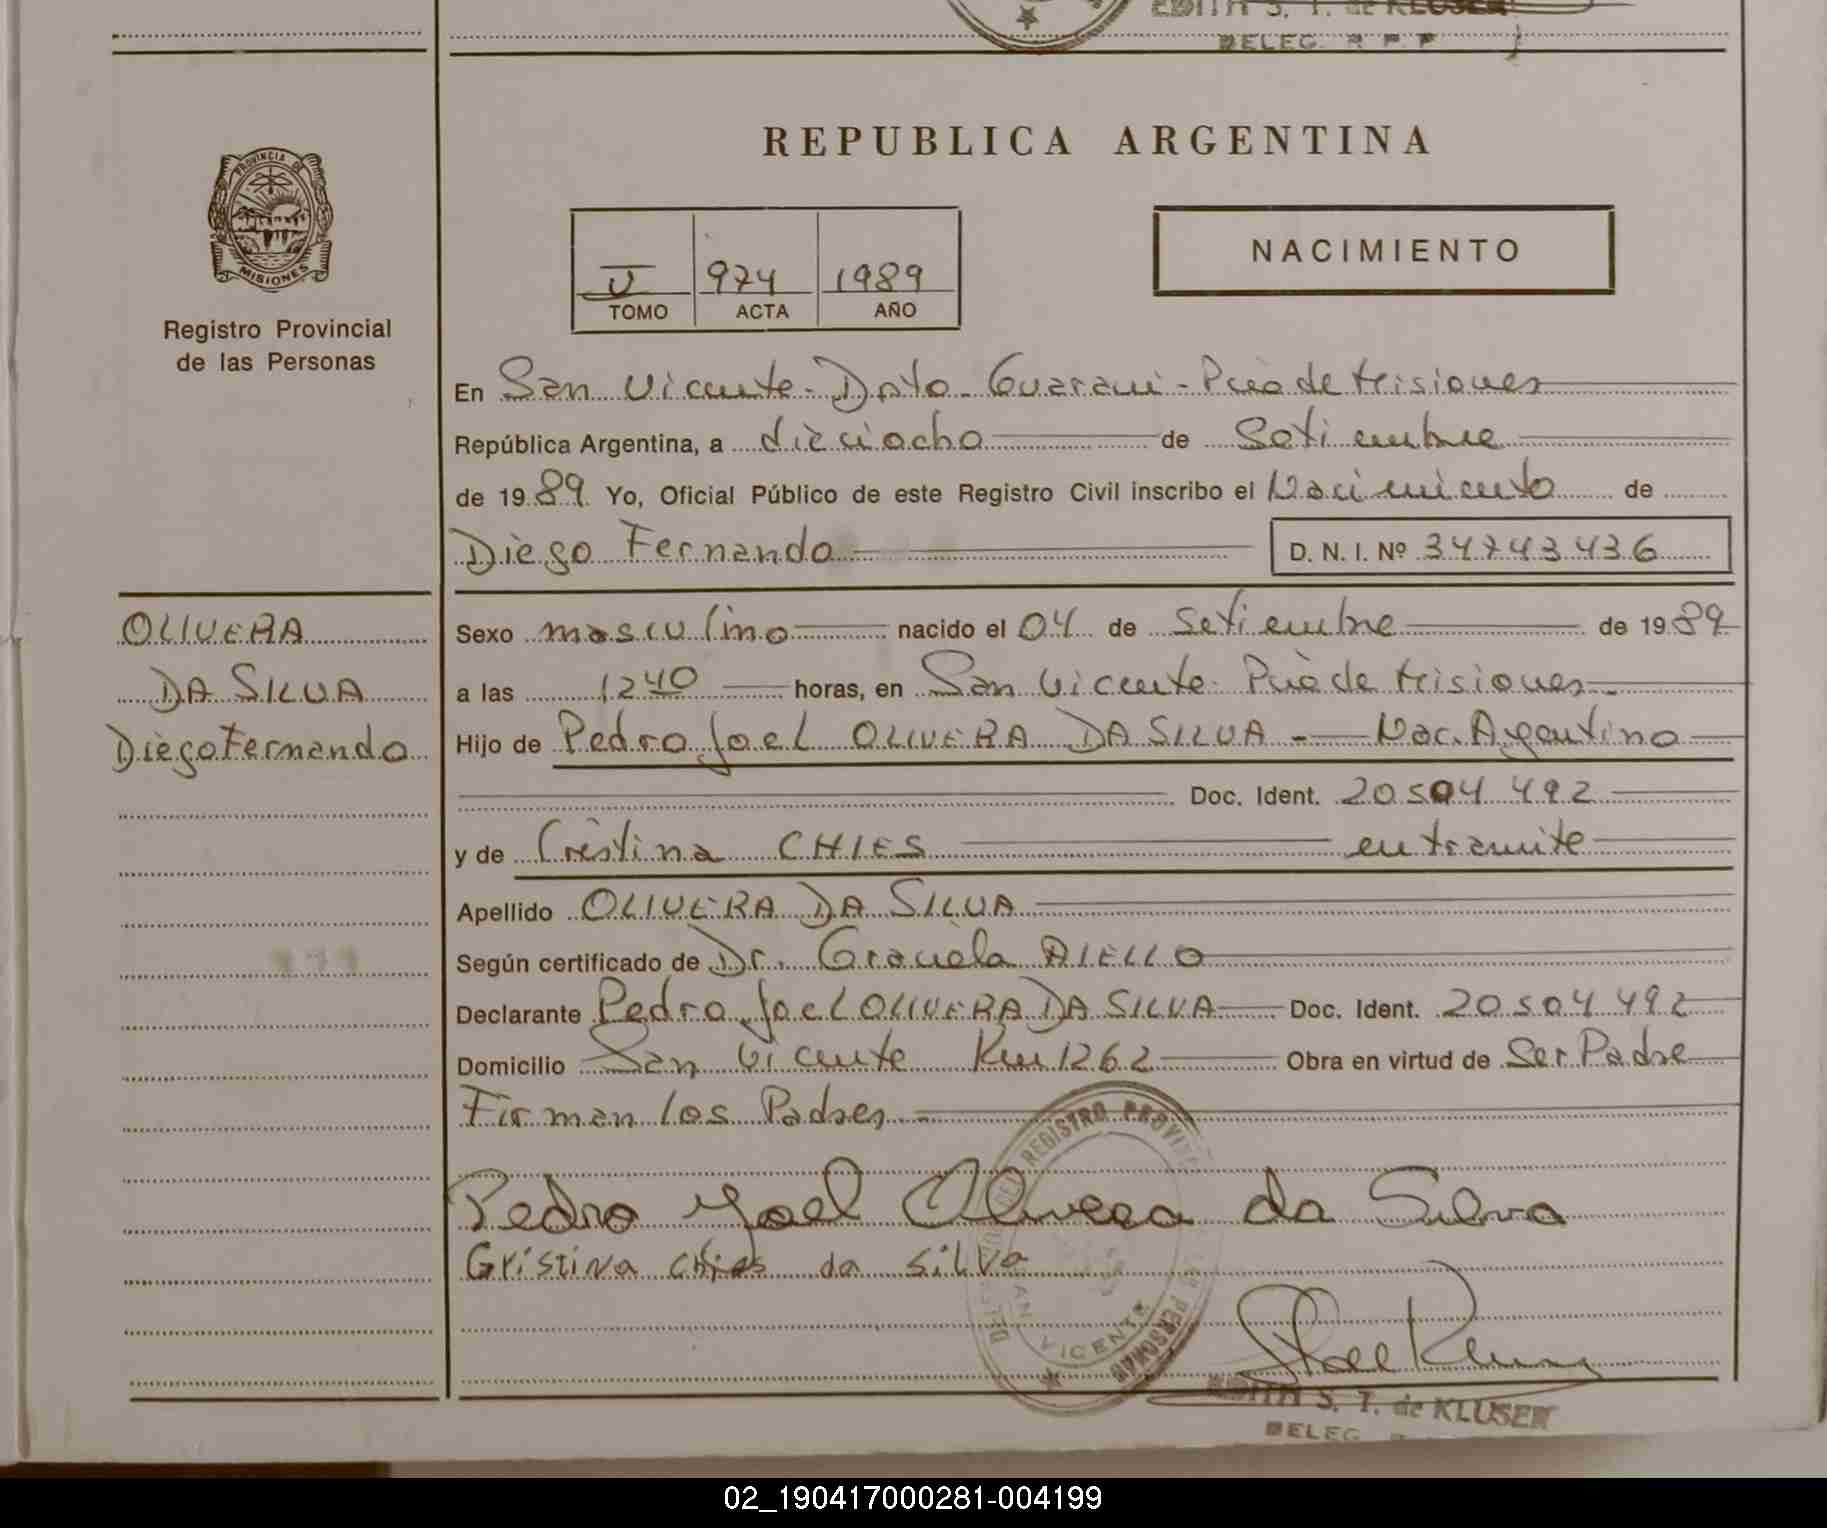 EDITH S. T. de KLUSER
DELEG. R P P
REPUBLICA ARGENTINA
PROVINCIA DE
MISIONES
Registro Provincial
de las Personas
V 974 1989
TOMO ACTA AÑO
NACIMIENTO
En San Vicente - Dpto. Guaraní - Pcia de Misiones
República Argentina, a dieciocho de Setiembre
de 1989 Yo, Oficial Público de este Registro Civil inscribo el Nacimiento de
Diego Fernando D. N. I. Nº 34743436
OLIVERA
DA SILVA
Diego Fernando
Sexo masculino nacido el 04 de Setiembre de 1989
a las 12 40 horas, en San Vicente Pcia de Misiones
Hijo de Pedro Joel OLIVERA DA SILVA - Nac. Argentino
Doc. Ident. 20504 492
y de Cristina CHIES en tramite
Apellido OLIVERA DA SILVA
Según certificado de Dr. Graciela AIELLO
Declarante Pedro Joel OLIVERA DA SILVA Doc. Ident. 20504492
Domicilio San Vicente Km 1262 Obra en virtud de Ser Padre
Firman los Padres
Pedro Yoel Olivera da Silva
Gristina chies da silva
REGISTRO PROVIN
PERSONAS
SAN VICENTE
EDITH S. T. de KLUSER
DELEG.
02_190417000281-004199